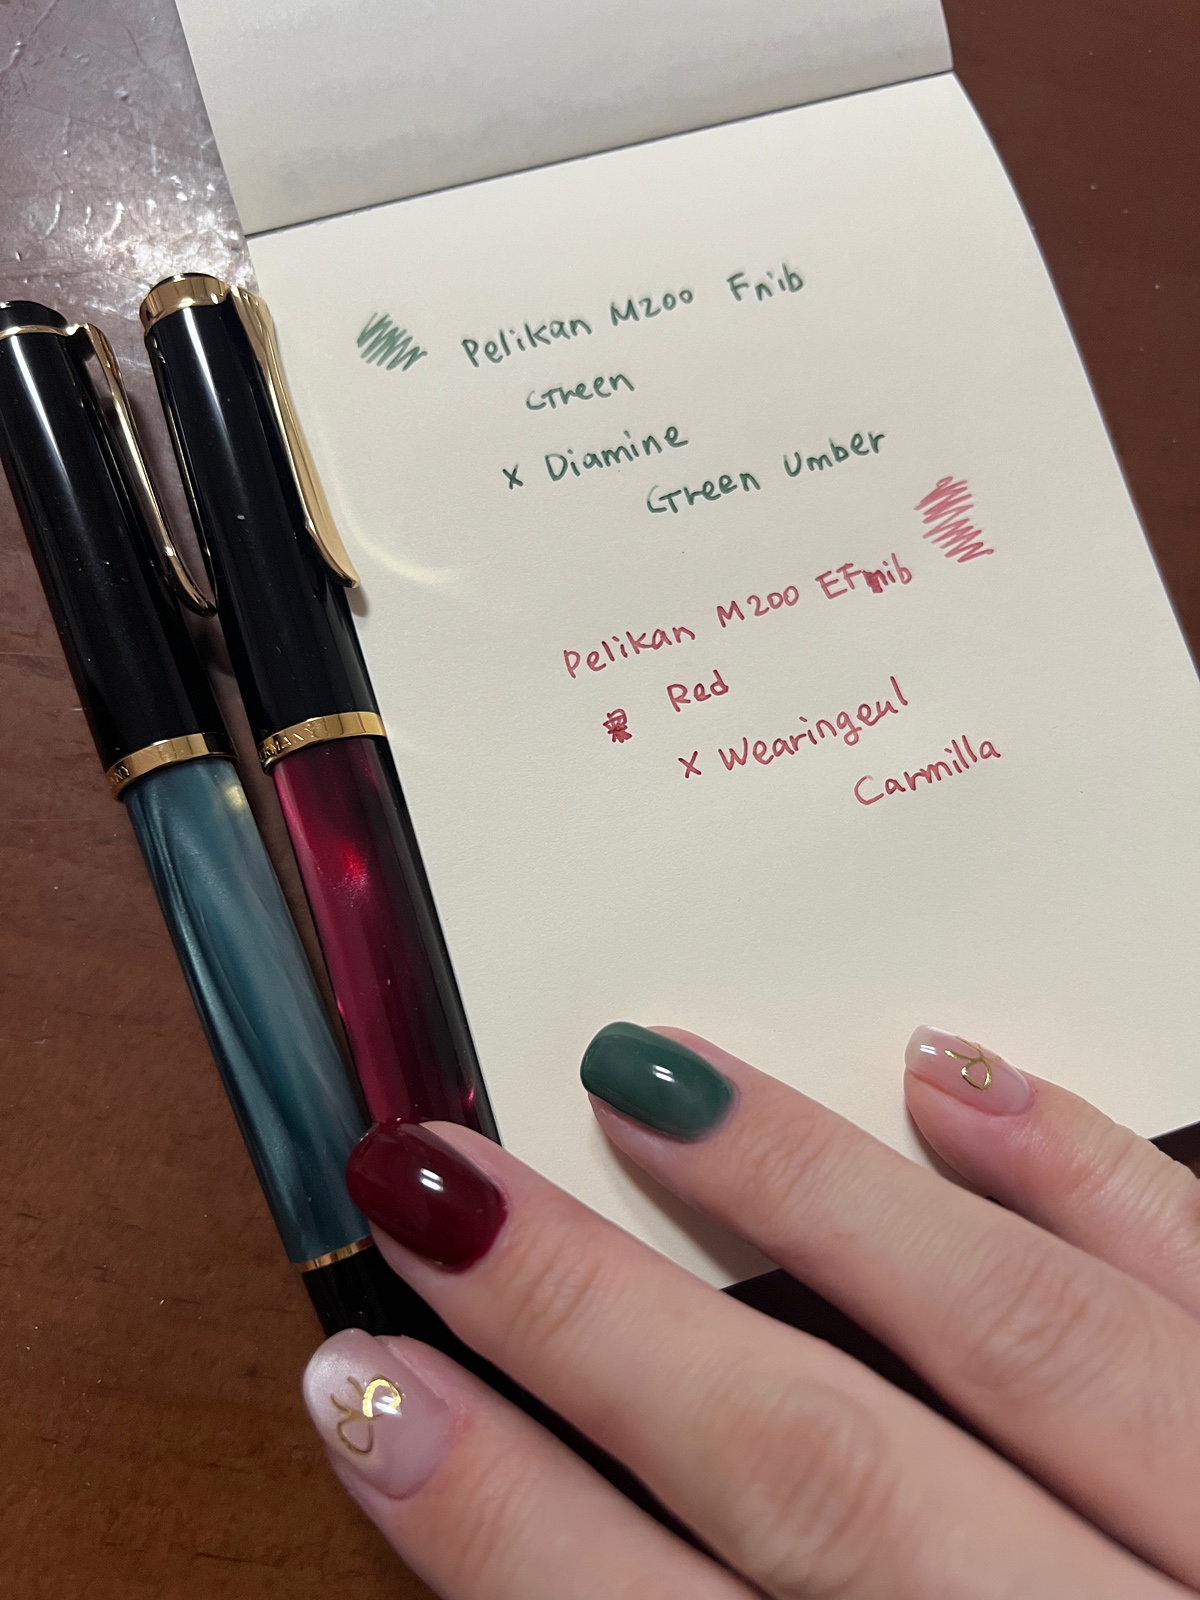 Pelikan M200 F nib
Green
x Diamine
Green Umber
Pelikan M200 EF nib
Red
x Wearingeul
Carmilla
GERMANY